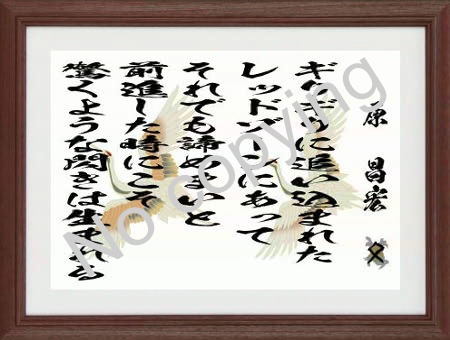 原 昌宏
ギリギリに追い込まれた
レッドゾーンにあって
それでも諦めまいと
前進した時にこそ
驚くような閃きは生まれる
No copying